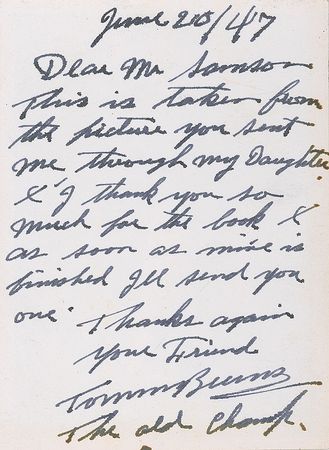 June 20/47
Dear Mr Samson
This is taken from
the picture you sent
me through my Daughter
& I thank you so
much for the book &
as soon as mine is
finished I'll send you
one.
Thanks again
your Friend
Tommy Burns
The old Champ.